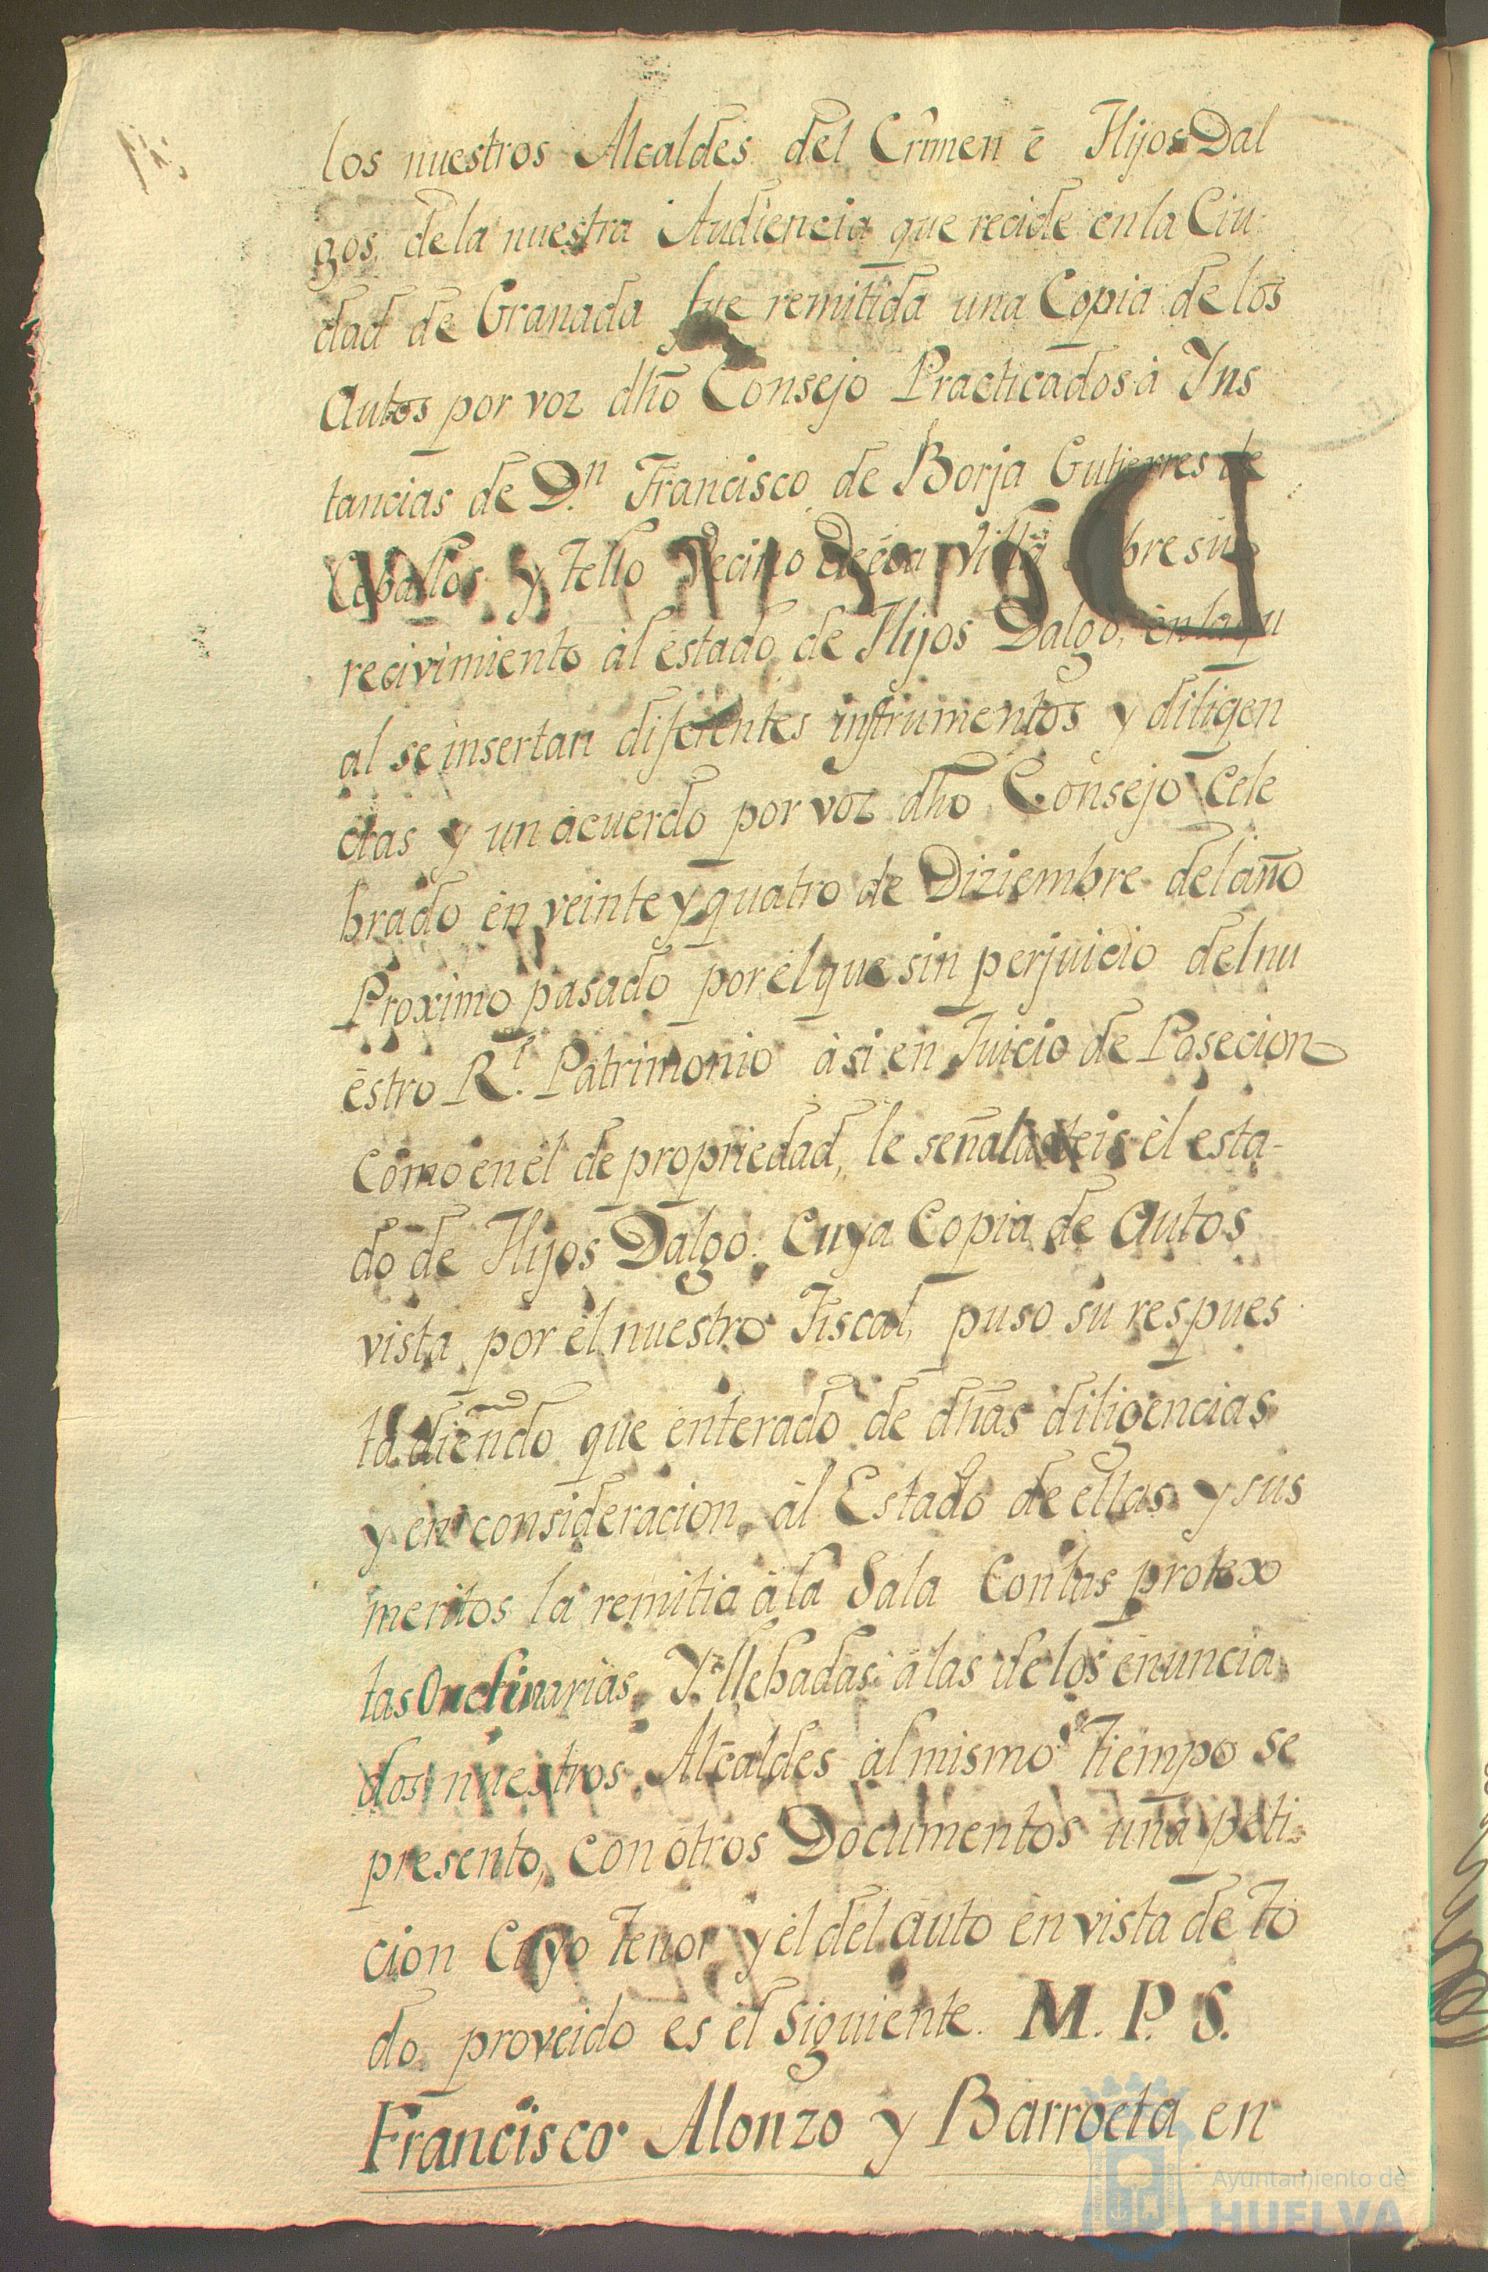 los nuestros Alcaldes del Crimen è Hijos Dal
gos, dela nuestra Audiencia que recide en la Ciu
dad de Granada fue remitida una Copia de los
Autos por voz dho Consejo Practicados à Yns
tancias de Dn. Francisco de Borja Gutierres de
Ceballos y Tello Vecino de ésa Villa sobre su
recivimiento àl estado de Hijos Dalgo, en la qu
al se insertan diferentes instrumentos y diligen
cias y un acuerdo por voz dho Consejo Cele
brado en veinte y quatro de Diziembre del año
Proximo pasado por el que sin perjuicio del nu
estro Rl. Patrimonio àsi en Juicio de Posecion
como en el de propriedad, le señalasteis èl esta-
do de Hijos Dalgo: Cuya Copia de Autos
vista por èl nuestro Fiscal, puso su respues
ta diendo que enterado de dhas diligencias
y en consideracion, àl Estado de ellas y sus
meritos la remitia à la Sala Con las protex
tas Ordinarias, Y llebadas à las de los enuncia
dos nuestros Alcaldes àl mismo Tiempo se
presento, con otros Documentos una peti-
cion Cuyo Tenor y èl del Auto en vista de To
do proveido es el Siguiente. M. P. S.
Francisco Alonzo y Barroeta en
Ayuntamiento de
HUELVA